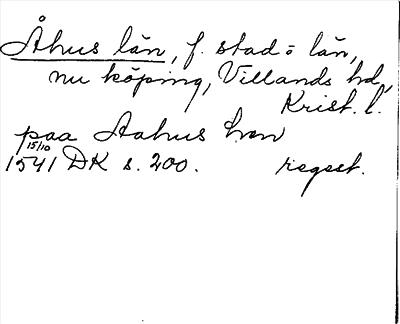 Åhus län, f. stad o län,
nu köping, Villands hd,
Krist. l.
paa Aahus len
15/10
1541 DK s. 200. regest.